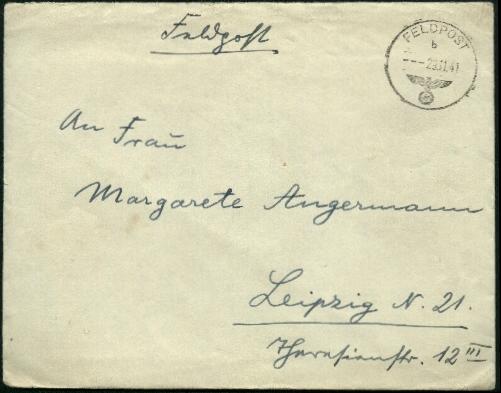 Feldpost
FELDPOST
b
---29.11.41
An Frau
Margarete Angermann
Leipzig N. 21.
Theresienstr. 12 III